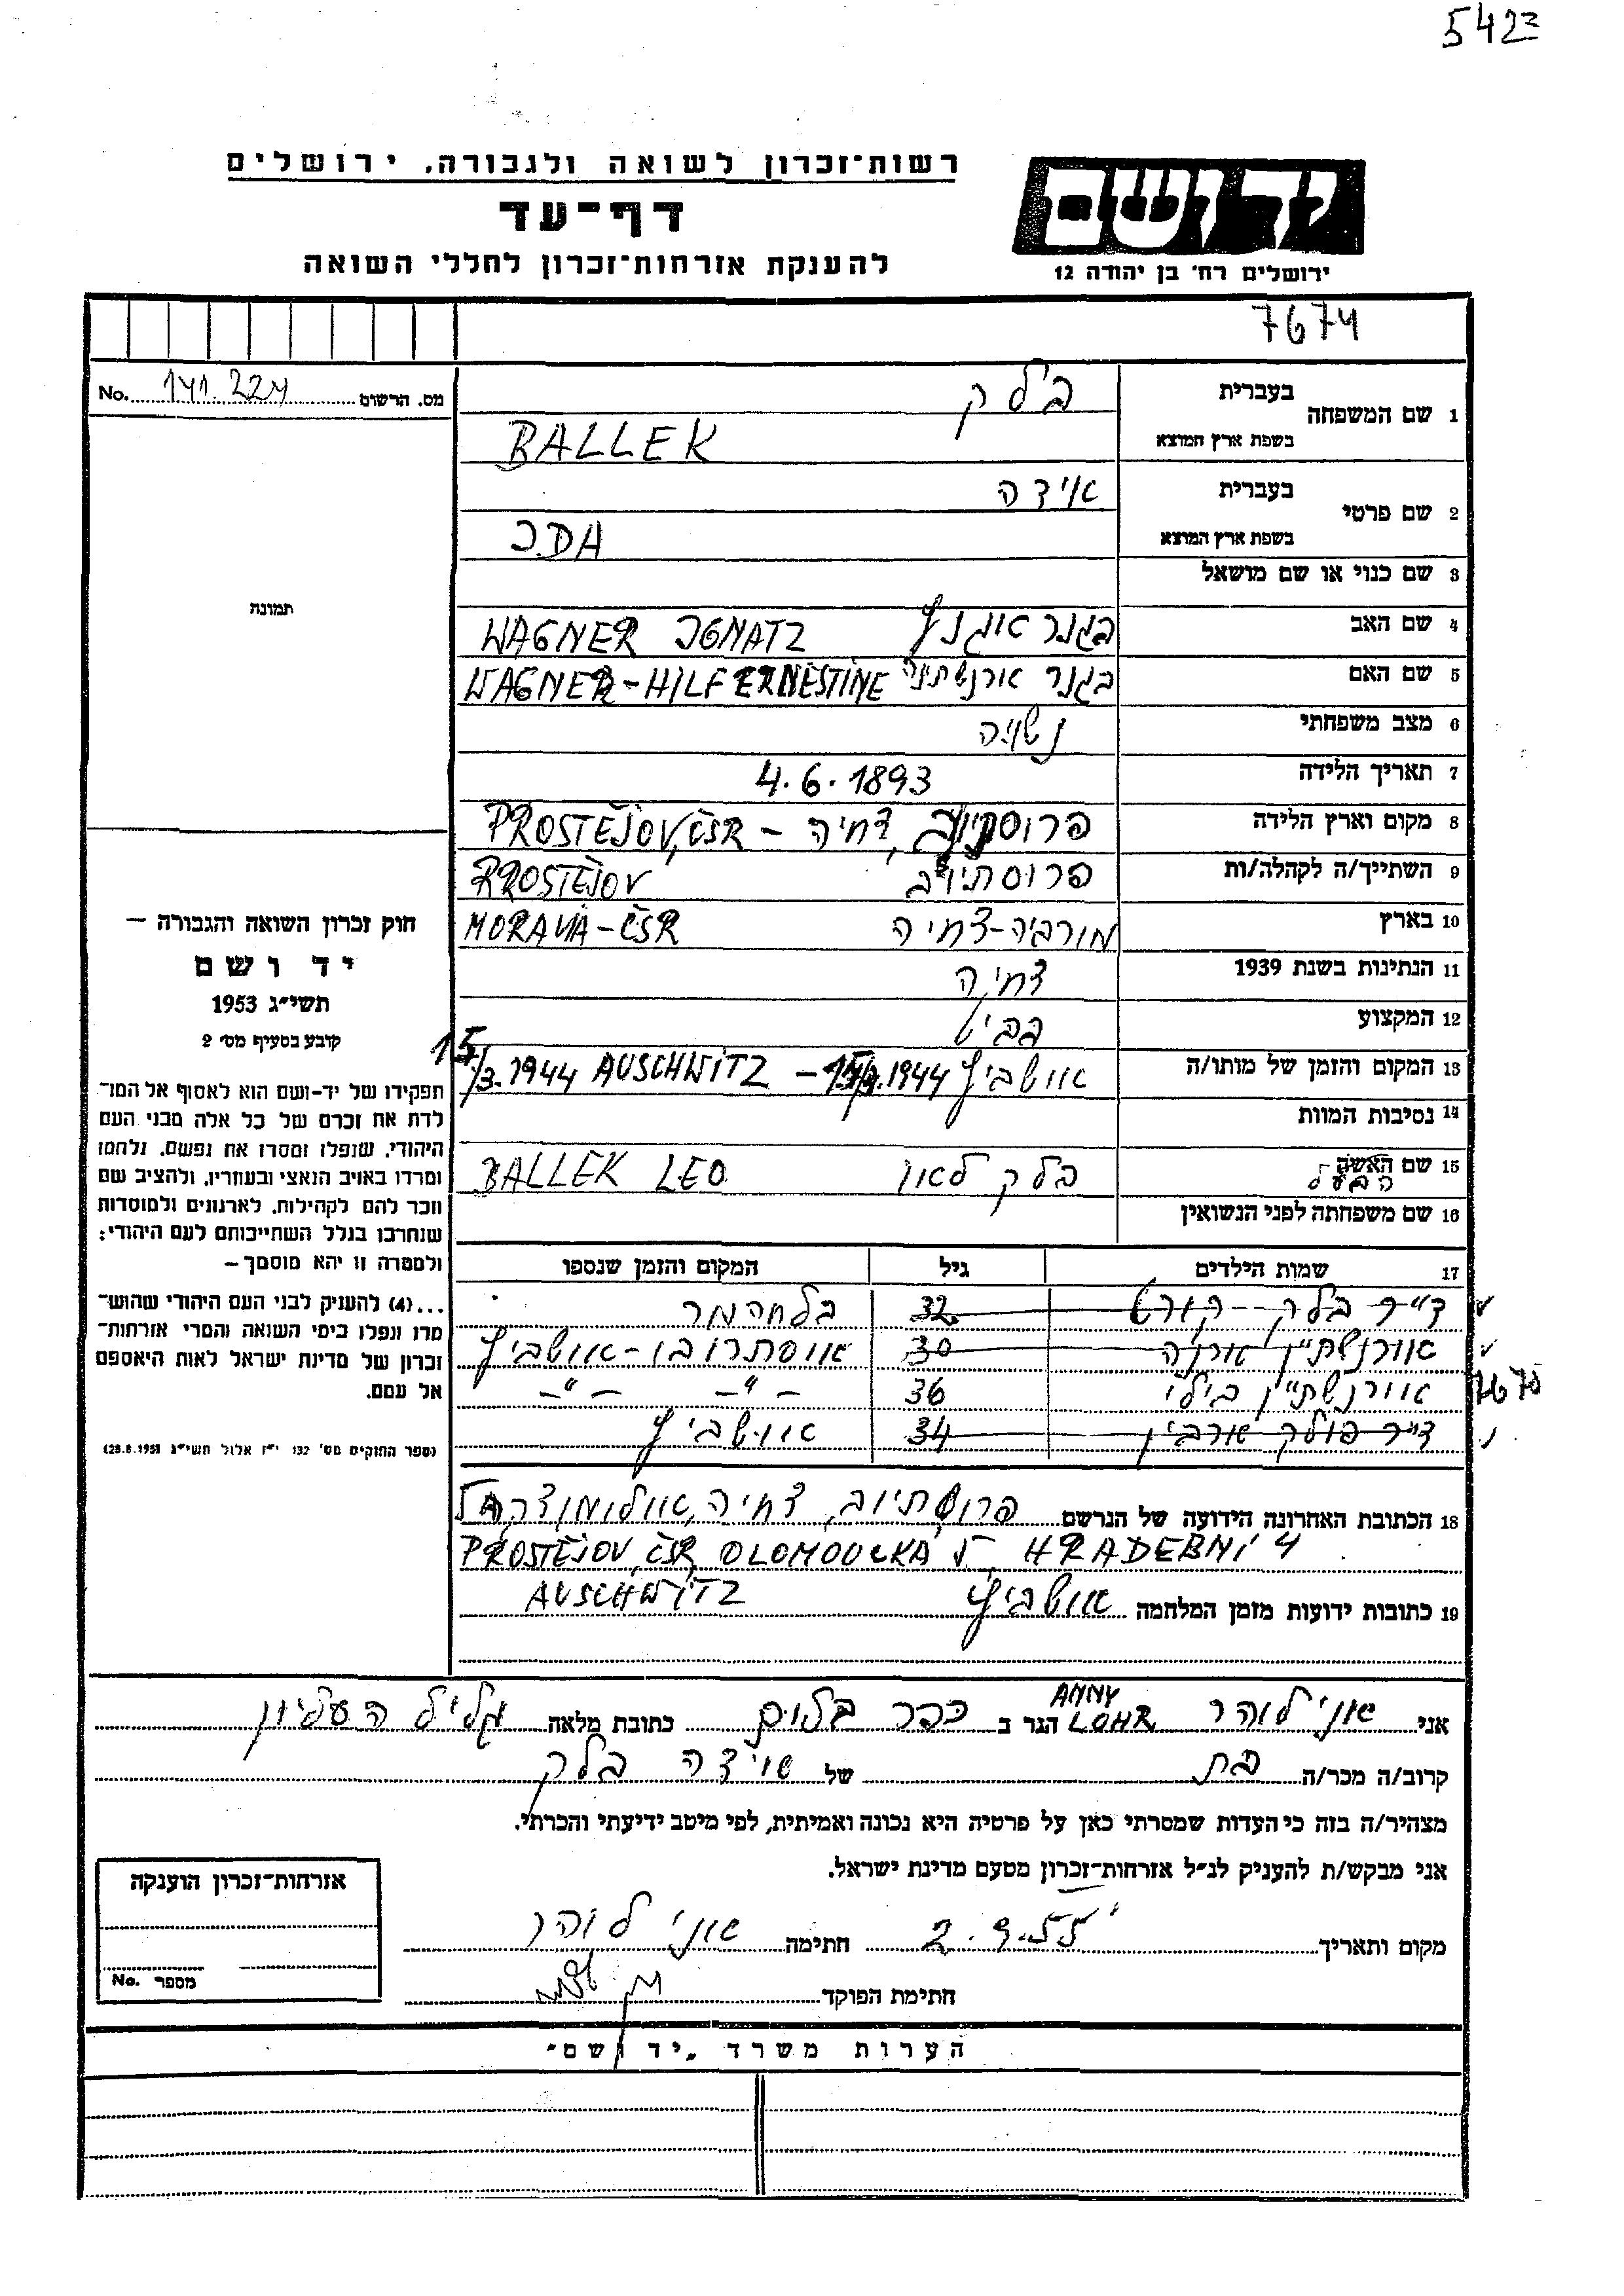 542
רשות־זכרון לשואה ולגבורה, ירושלים
דף־עד
להענקת אזרחות־זכרון לחללי השואה
יד ושם
ירושלים רח׳ בן יהודה 12
7674
מס. הרשום 141.224 No.
תמונה
1 שם המשפחה
בעברית בלק
בשפת ארץ המוצא BALLEK
2 שם פרטי
בעברית אידה
בשפת ארץ המוצא IDA
3 שם כנוי או שם מושאל
4 שם האב וגנר איגנץ WAGNER IGNATZ
5 שם האם וגנר ארנשתינה WAGNER-HILF ERNESTINE
6 מצב משפחתי נשויה
7 תאריך הלידה 4.6.1893
8 מקום וארץ הלידה פרוסטיוב, צ׳כיה - PROSTĚJOV, ČSR
9 השתייך/ה לקהלה/ות פרוסתיוב PROSTĚJOV
10 בארץ מורביה-צ׳כיה MORAVIA-ČSR
11 הנתינות בשנת 1939 צ׳כיה
12 המקצוע
13 המקום והזמן של מותו/ה אושביץ 15/3.1944 - AUSCHWITZ 15/3.1944
14 נסיבות המוות
15 שם האשה הבעל בלק לאו BALLEK LEO
16 שם משפחתה לפני הנשואין
17 שמות הילדים גיל המקום והזמן שנספו
ד״ר בלק קורט 32
אורנשתיין ארנה 30 אוסתרובו-אושביץ
אורנשתיין בילי 36 -״- -״- 7675
ד״ר פולק ארבין 34 אושביץ
18 הכתובת האחרונה הידועה של הנרשם פרוסתיוב, צ׳כיה,
PROSTĚJOV, ČSR, OLOMOUCKÁ 5, HRADEBNÍ 4
19 כתובות ידועות מזמן המלחמה אושביץ AUSCHWITZ
חוק זכרון השואה והגבורה —
יד ושם
תשי״ג 1953
קובע בסעיף מס׳ 2
תפקידו של יד-ושם הוא לאסוף אל המו־
לדת את זכרם של כל אלה מבני העם
היהודי, שנפלו ומסרו את נפשם, נלחמו
ומרדו באויב הנאצי ובעוזריו, ולהציב שם
וזכר להם לקהילות, לארגונים ולמוסדות
שנחרבו בגלל השתייכותם לעם היהודי:
ולמטרה זו יהא מוסמך —
...(4) להעניק לבני העם היהודי שהוש־
מדו ונפלו בימי השואה והמרי אזרחות־
זכרון של מדינת ישראל לאות היאספם
אל עמם.
(ספר החוקים מס׳ 132 י״ז אלול תשי״ג 28.8.1953)
אני אני לוהר ANNY LOHR הגר ב כפר בלום כתובת מלאה גליל העליון
קרוב/ה מכר/ה בת של אידה בלק
מצהיר/ה בזה כי העדות שמסרתי כאן על פרטיה היא נכונה ואמיתית, לפי מיטב ידיעתי והכרתי.
אני מבקש/ת להעניק לנ״ל אזרחות־זכרון מטעם מדינת ישראל.
מקום ותאריך 2.9.55 חתימה אני לוהר
חתימת הפוקד
אזרחות־זכרון הוענקה
מספר No.
הערות משרד „יד ושם״